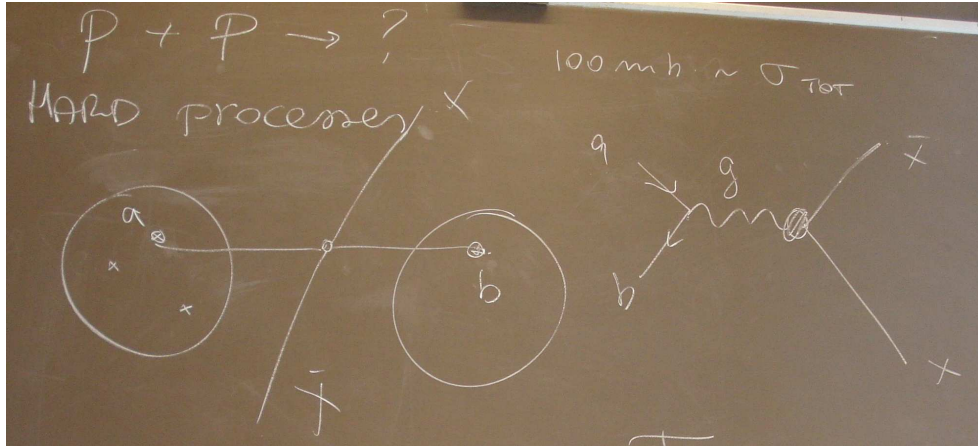 P + P → ?
100 mb ~ σ_TOT
HARD processes
X
a
b
X̄
a
g
X̄
b
X